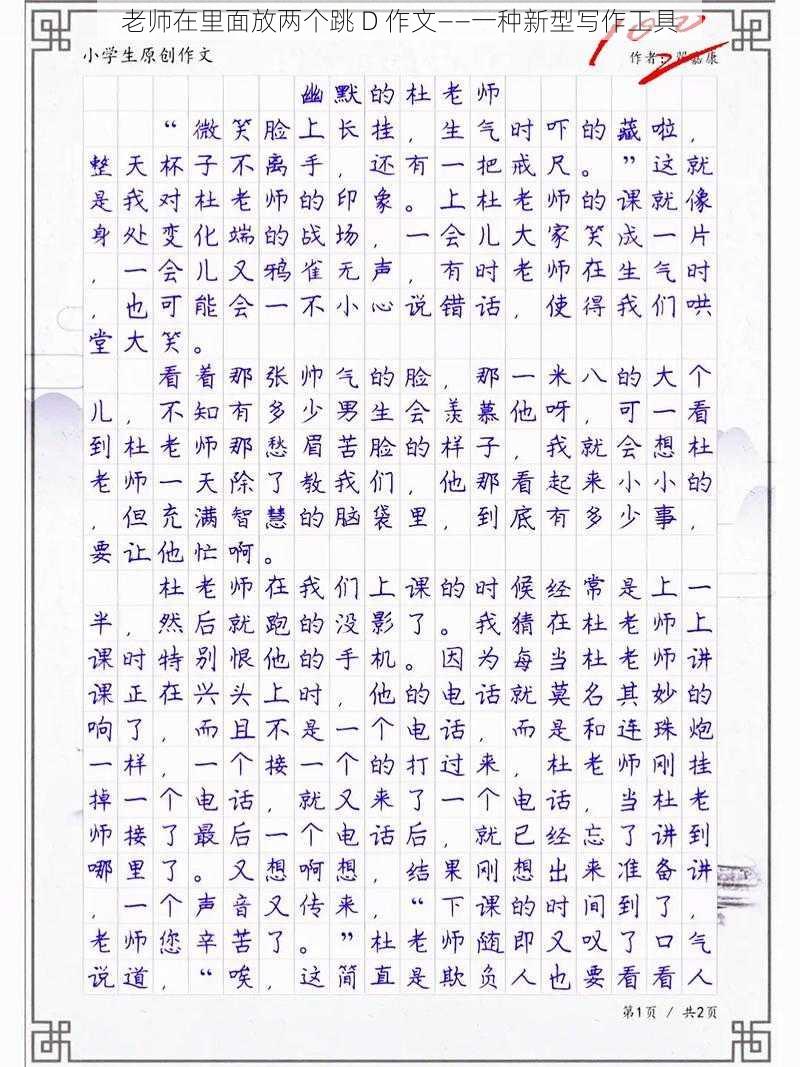 老师在里面放两个跳 D 作文——一种新型写作工具
100
小学生原创作文
作者：嘉康
幽默的杜老师
“微笑脸上长挂，生气时吓的藏啦，
整天杯子不离手，还有一把戒尺。”这就
是我对杜老师的印象。上杜老师的课就像
身处变化端的战场，一会儿大家笑成一片
，一会儿又鸦雀无声，有时老师在生气时
，也可能会一不小心说错话，使得我们哄
堂大笑。
看着那张帅气的脸，那一米八的大个
儿，不知有多少男生会羡慕他呀，可一看
到杜老师那愁眉苦脸的样子，我就会想杜
老师一天除了教我们，他那看起来小小的
，但充满智慧的脑袋里，到底有多少事，
要让他忙啊。
杜老师在我们上课的时候经常是上一
半，然后就跑的没影了。我猜在杜老师上
课时特别恨他的手机。因为每当杜老师讲
课正在兴头上时，他的电话就莫名其妙的
响了，而且不是一个电话，而是和连珠炮
一样，一个接一个的打过来，杜老师刚挂
掉一个电话，就又来了一个电话，当杜老
师接了最后一个电话后，就已经忘了讲到
哪里了。又想啊想，结果刚想出来准备讲
，一个声音又传来，“下课的时间到了，
老师您辛苦了。”杜老师随即又叹了口气
说道，“唉，这简直是欺负人也要看看人
第1页 / 共2页